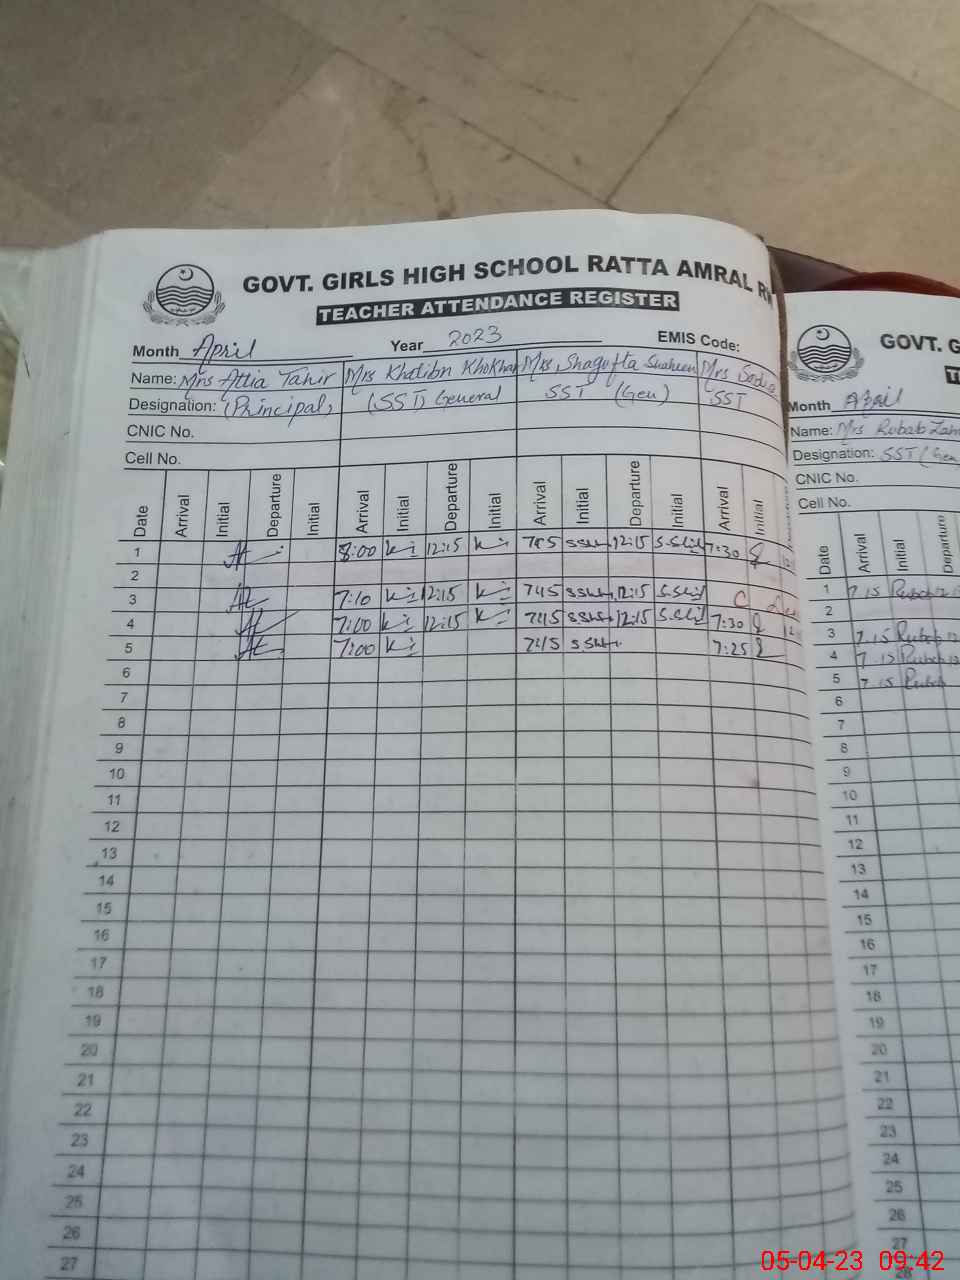 GOVT. GIRLS HIGH SCHOOL RATTA AMRAL
TEACHER ATTENDANCE REGISTER
Month April Year 2023 EMIS Code:
Name: Mrs Attia Tahir Mrs Khatibn Khokhar Mrs Shagufta Shaheen Mrs
Designation: (Principal) (SST) General SST (Gen) SST
CNIC No.
Cell No.
Date Arrival Initial Departure Initial Arrival Initial Departure Initial Arrival Initial Departure Initial Arrival Initial
1 8:00 12:15 745 12:15 7:30
2
3 7:10 12:15 745 12:15 C
4 7:00 12:15 745 12:15 7:30
5 7:00 745 7:25
6
7
8
9
10
11
12
13
14
15
16
17
18
19
20
21
22
23
24
25
26
27
GOVT. G
Month April
Name: Mrs Rubab
Designation: SST (Gen
CNIC No.
Cell No.
Date Arrival Initial Departure
1 7.15 Rubab
2
3 7.15 Rubab
4 7.15 Rubab
5 7.15 Rubab
6
7
8
9
10
11
12
13
14
15
16
17
18
19
20
21
22
23
24
25
26
27
28
05-04-23 09:42